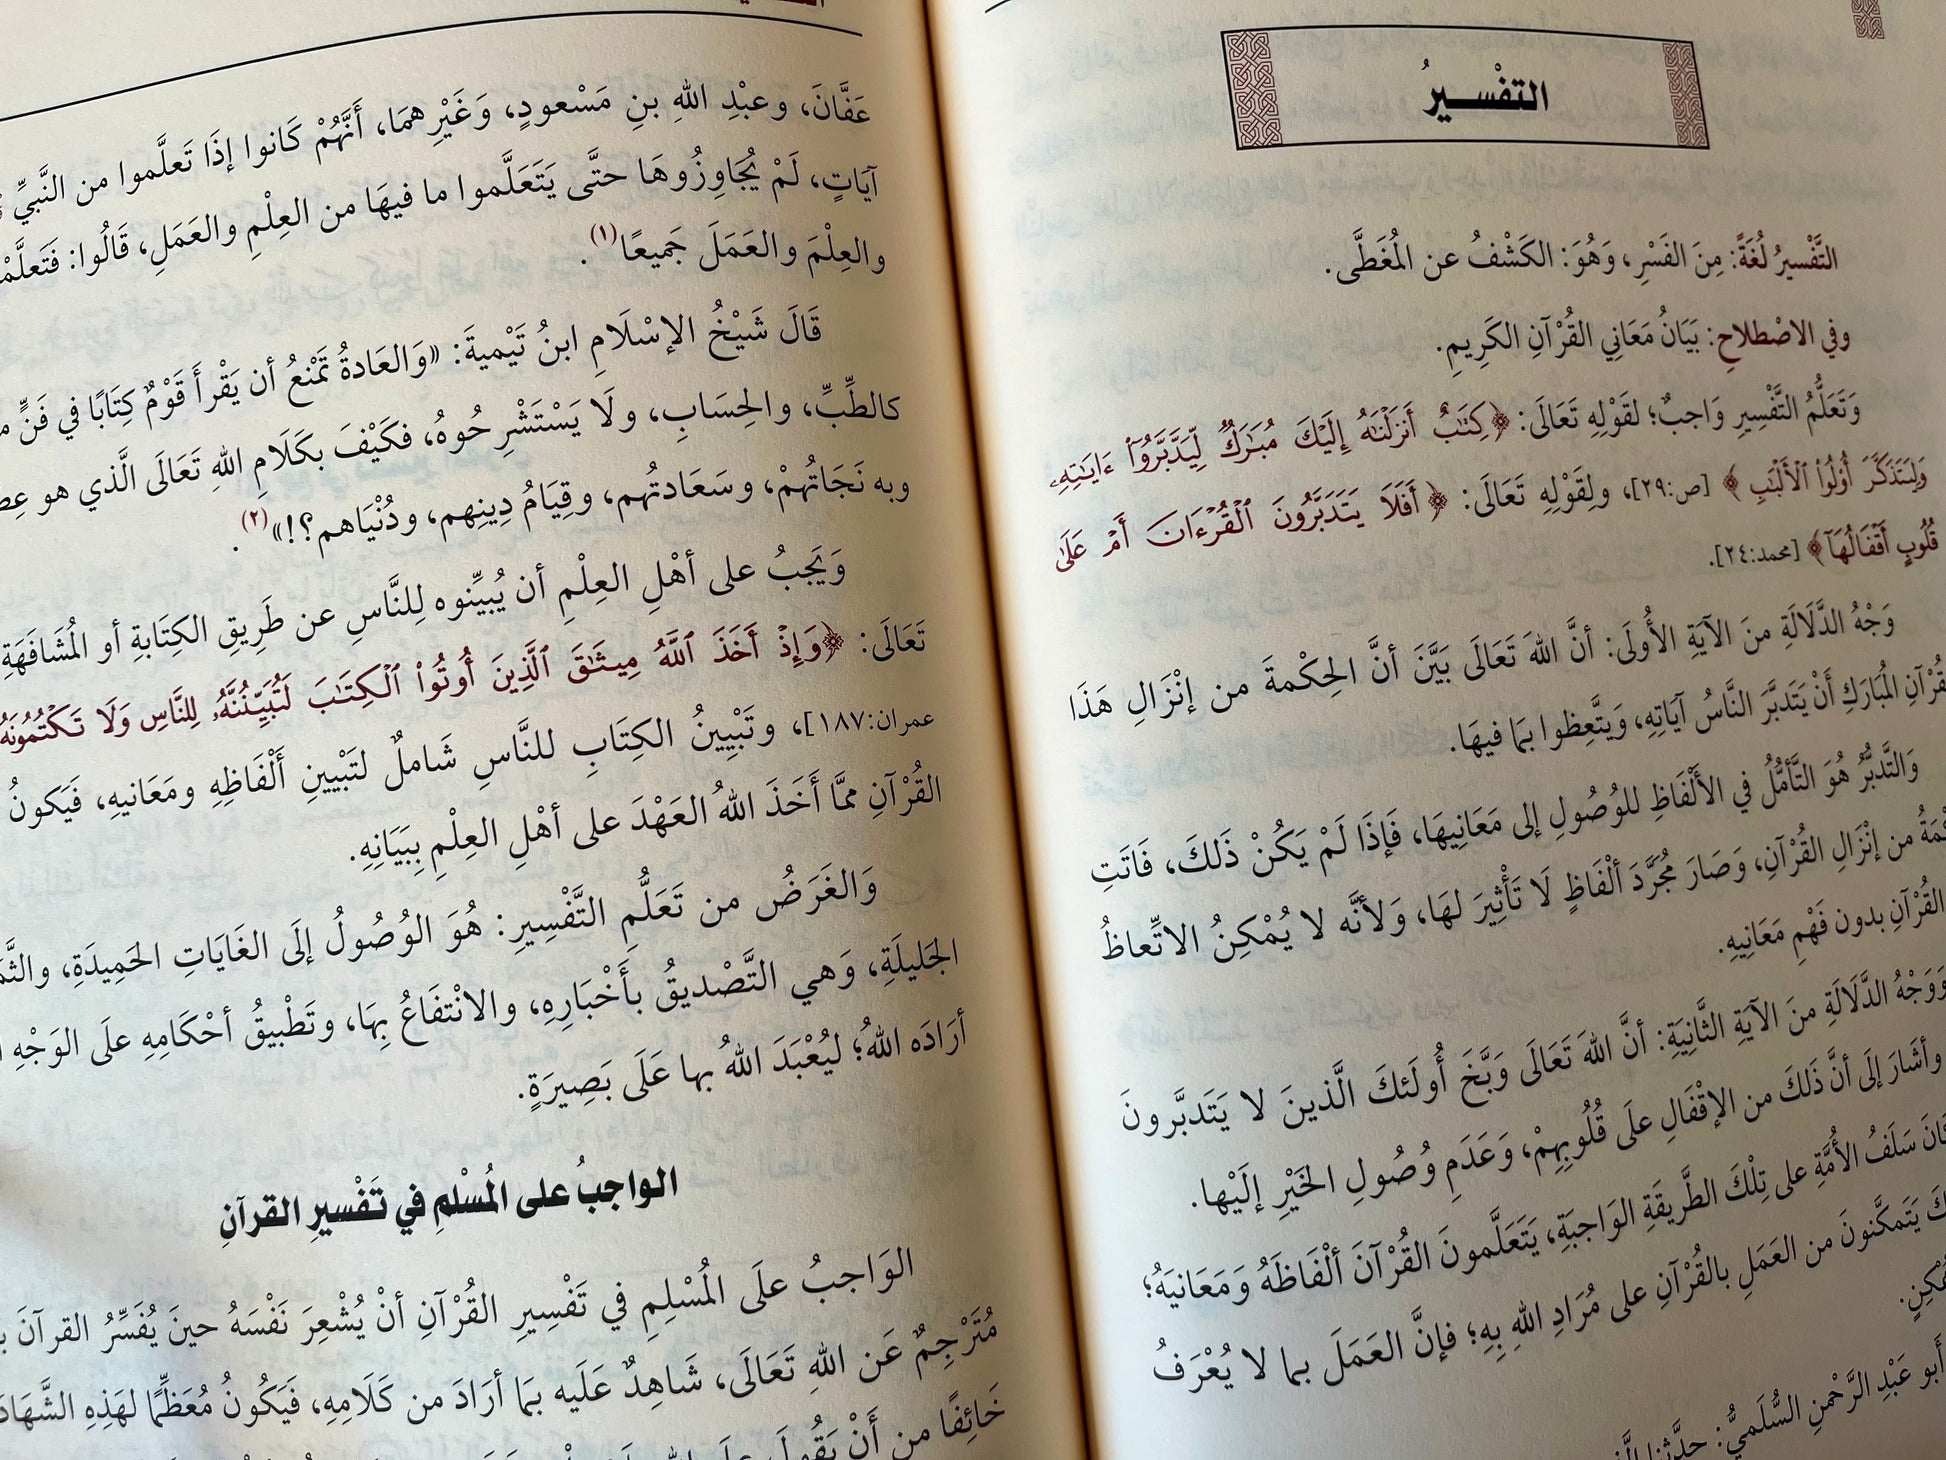 التفْسيرُ
التَّفْسيرُ لُغَةً: مِنَ الفَسْرِ، وَهُوَ: الكَشْفُ عن المُغَطَّى.
وفي الاصْطلاحِ: بَيَانُ مَعَانِي القُرْآنِ الكَرِيمِ.
وَتَعَلُّمُ التَّفْسِيرِ وَاجبٌ؛ لقَوْلِهِ تَعَالَى: ﴿كِتَٰبٌ أَنزَلْنَٰهُ إِلَيْكَ مُبَٰرَكٌ لِّيَدَّبَّرُوٓاْ ءَايَٰتِهِۦ
وَلِيَتَذَكَّرَ أُوْلُواْ ٱلْأَلْبَٰبِ﴾ [ص:٢٩]، ولِقَوْلِهِ تَعَالَى: ﴿أَفَلَا يَتَدَبَّرُونَ ٱلْقُرْءَانَ أَمْ عَلَىٰ
قُلُوبٍ أَقْفَالُهَآ﴾ [محمد:٢٤].
وَجْهُ الدَّلَالَةِ منَ الآيَةِ الأُولَى: أنَّ اللهَ تَعَالَى بَيَّنَ أنَّ الحِكْمةَ من إنْزَالِ هَذَا
القُرْآنِ المُبَارَكِ أَنْ يَتَدبَّرَ النَّاسُ آيَاتِهِ، وَيتَّعِظوا بمَا فيهَا.
وَالتَّدبُّرُ هُوَ التَّأمُّلُ في الأَلْفَاظِ للوُصُولِ إلى مَعَانِيهَا، فَإِذَا لَمْ يَكُنْ ذَلكَ، فَاتَتِ
من إنْزَالِ القُرْآنِ، وَصَارَ مُجَرَّدَ ألْفَاظٍ لَا تَأْثِيرَ لهَا، وَلأنَّه لا يُمْكِنُ الاتِّعاظُ
القُرْآنِ بدون فَهْمِ مَعَانِيهِ.
وَوَجْهُ الدَّلَالَةِ منَ الآيَةِ الثَّانِيَةِ: أنَّ اللهَ تَعَالَى وَبَّخَ أُولَئكَ الَّذينَ لا يَتَدبَّرونَ
وأشَارَ إلَى أنَّ ذَلكَ من الإقْفَالِ علَى قُلُوبِهِمْ، وَعَدَمِ وُصُولِ الخَيْرِ إلَيْها.
سَلَفُ الأُمَّةِ على تِلْكَ الطَّريقَةِ الوَاجبَةِ، يَتَعَلَّمونَ القُرْآنَ ألْفَاظَهُ وَمَعَانيَهُ؛
يَتَمكَّنونَ من العَمَلِ بالقُرْآنِ على مُرَادِ اللهِ بِهِ؛ فإنَّ العَمَلَ بما لا يُعْرَفُ
أَبو عَبْدِ الرَّحْمنِ السُّلَميُّ: حدَّثنا
عَفَّانَ، وعبْدِ اللهِ بنِ مَسْعودٍ، وَغَيْرِهمَا، أَنَّهُمْ كَانوا إذَا تَعلَّموا من النَّبيِّ
آيَاتٍ، لَمْ يُجَاوِزُوهَا حتَّى يَتَعَلَّموا ما فيهَا من العِلْمِ والعَمَلِ، قَالُوا:
والعِلْمَ والعَمَلَ جَميعًا(١).
قَالَ شَيْخُ الإسْلَامِ ابنُ تَيْميةَ: «وَالعَادةُ تَمْنَعُ أن يَقْرأَ قَوْمٌ كِتَابًا في فَنٍّ
كالطِّبِّ، والحِسَابِ، ولَا يَسْتَشْرِحُوهُ، فكَيْفَ بكَلَامِ اللهِ تَعَالَى الَّذي هو
وبه نَجَاتُهُمْ، وسَعَادتُهم، وقِيَامُ دِينِهم، ودُنْيَاهم؟!»(٢).
وَيَجبُ على أهْلِ العِلْمِ أن يُبيِّنوه لِلنَّاسِ عن طَرِيقِ الكِتَابةِ أو المُشَافَهَةِ
تَعَالَى: ﴿وَإِذْ أَخَذَ ٱللَّهُ مِيثَٰقَ ٱلَّذِينَ أُوتُواْ ٱلْكِتَٰبَ لَتُبَيِّنُنَّهُۥ لِلنَّاسِ وَلَا تَكْتُمُونَهُ
عمران:١٨٧]، وتَبْيِينُ الكِتَابِ للنَّاسِ شَاملٌ لتَبْيينِ ألْفَاظِهِ ومَعَانيهِ، فَيَكونُ
القُرْآنِ ممَّا أَخَذَ اللهُ العَهْدَ على أهْلِ العِلْمِ بِبَيَانِهِ.
وَالغَرَضُ من تَعَلُّمِ التَّفْسِيرِ: هُوَ الوُصُولُ إلَى الغَايَاتِ الحَمِيدَةِ،
الجَليلَةِ، وَهي التَّصْديقُ بأَخْبَارِهِ، والانْتفَاعُ بِهَا، وتَطْبيقُ أحْكَامِهِ علَى الوَجْهِ
أرَادَه اللهُ؛ ليُعْبَدَ اللهُ بها عَلَى بَصِيرَةٍ.
الواجبُ على المُسْلمِ في تَفْسيرِ القرآنِ
الوَاجبُ علَى المُسْلِمِ في تَفْسِيرِ القُرْآنِ أنْ يُشْعِرَ نَفْسَهُ حينَ يُفَسِّرُ القرآنَ
مُتَرْجِمٌ عَن اللهِ تَعَالَى، شَاهِدٌ عَلَيه بمَا أرَادَ من كَلَامِهِ، فَيَكُونُ مُعَظِّمًا لهَذِهِ
خَائِفًا من أَنْ يَقُولَ